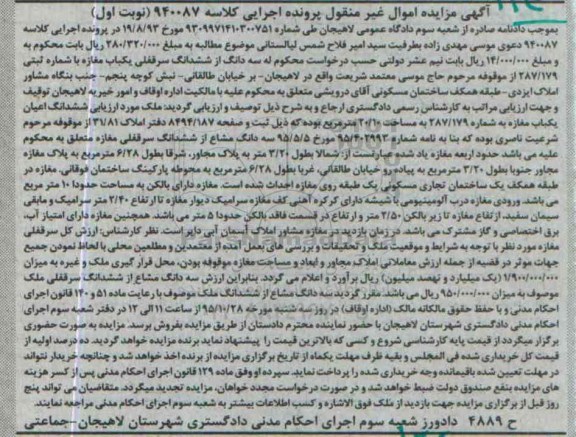 آگهی مزایده اموال غیر منقول پرونده اجرایی کلاسه ۹۴۰۰۸۷ (نوبت اول)
بموجب دادنامه صادره از شعبه سوم دادگاه عمومی لاهیجان طی شماره ۹۳۰۹۹۷۱۴۱۰۳۰۰۷۵۱ مورخ ۱۹/۸/۹۳ در پرونده اجرایی کلاسه
۹۴۰۰۸۷ دعوی موسی مهدی زاده بطرفیت سید امیر فلاح شمس لیالستانی موضوع مطالبه به مبلغ ۲۸۰/۳۲۰/۰۰۰ ریال بابت محکوم به
و مبلغ ۱۴/۰۰۰/۰۰۰ ریال بابت نیم عشر دولتی حسب درخواست محکوم له سه دانگ از ششدانگ سرقفلی یکباب مغازه با شماره ثبتی
۲۸۷/۱۷۹ از موقوفه مرحوم حاج موسی معتمد شریعت واقع در لاهیجان- بر خیابان طالقانی- نبش کوچه پنجم- جنب بنگاه مشاور
املاک ایزدی- طبقه همکف ساختمان مسکونی آقای درویشی متعلق به محکوم علیه با مالکیت اداره اوقاف و امور خیریه لاهیجان توقیف
و جهت ارزیابی مراتب به کارشناس رسمی دادگستری ارجاع و به شرح ذیل توصیف و ارزیابی گردید: ملک مورد ارزیابی ششدانگ اعیان
یکباب مغازه به شماره ۲۸۷/۱۷۹ به مساحت ۲۰/۱۰ مترمربع بوده که ذیل ثبت و صفحه ۸۴۹۴/۱۸۷ دفتر املاک ۳۱/۸۱ از موقوفه مرحوم
شرعیت ناصری بوده که بنا به نامه شماره ۹۵/۴۰۳۹۹۳ مورخ ۹۵/۵/۵ سه دانگ مشاع از ششدانگ سرقفلی مغازه متعلق به محکوم
علیه می باشد حدود اربعه مغازه یاد شده، عبارتست از: شمالا بطول ۳/۲۰ متر به پلاک مجاور، شرقا بطول ۶/۲۸ مترمربع به پلاک مغازه
مجاور جنوبا بطول ۳/۲۰ مترمربع به پیاده رو خیابان طالقانی، غربا بطول ۶/۲۸ مترمربع به محوطه پارکینگ ساختمان فوقانی، مغازه در
طبقه همکف یک ساختمان تجاری مسکونی یک طبقه روی مغازه احداث شده است. مغازه دارای بالکن به مساحت حدودا ۱۰ متر مربع
می باشد. ورودی مغازه درب آلومینیومی با شیشه دارای کرکره آهنی کف مغازه سرامیک دیوار مغازه تا ارتفاع ۲/۴۰ متر سرامیک و مابقی
سیمان سفید، ارتفاع مغازه تا زیر بالکن ۲/۵۰ متر و ارتفاع در قسمت فاقد بالکن حدودا ۵ متر می باشد. همچنین مغازه دارای امتیاز آب،
برق اختصاصی و گاز مشترک می باشد. در زمان بازدید در مغازه مشاور املاک آسمان آبی دایر است. نظر کارشناس: ارزش کل سرقفلی
مغازه مورد نظر با توجه به شرایط و موقعیت ملک و تحقیقات و بررسی های بعمل آمده از معتمدین و مطلعین محلی با لحاظ نمودن جمیع
جهات موثر در قضیه از جمله ارزش معاملاتی املاک مجاور و ابعاد و مساحت مغازه موقوفه بودن، محل قرار گیری ملک و غیره به میزان
۱/۹۰۰/۰۰۰/۰۰۰ (یک میلیارد و نهصد میلیون) ریال برآورد و اعلام می گردد. بنابراین ارزش سه دانگ مشاع از ششدانگ سرقفلی ملک
موصوف به میزان ۹۵۰/۰۰۰/۰۰۰ ریال می باشد. مقرر گردید سه دانگ مشاع از ششدانگ ملک موصوف با رعایت ماده ۵۱ و ۱۲۰ قانون اجرای
احکام مدنی و با حفظ حقوق مالکانه مالک (اداره اوقاف) در روز سه شنبه مورخه ۹۵/۱۰/۲۸ از ساعت ۱۱ الی ۱۲ در دفتر شعبه سوم اجرای
احکام مدنی دادگستری شهرستان لاهیجان با حضور نماینده محترم دادستان از طریق مزایده بفروش برسد. مزایده به صورت حضوری
برگزار میگردد از قیمت پایه کارشناسی شروع و کسی که بالاترین قیمت را پیشنهاد نماید برنده مزایده خواهد گردید. ده درصد اولیه از
قیمت کل خریداری شده فی المجلس و بقیه ظرف مهلت یکماه از تاریخ برگزاری مزایده از برنده اخذ خواهد شد و چنانچه خریدار نتواند
در مهلت تعیین شده باقیمانده وجه خریداری شده را پرداخت نماید. سپرده او وفق ماده ۱۲۹ قانون اجرای احکام مدنی پس از کسر هزینه
های مزایده بنفع صندوق دولت ضبط خواهد شد و در صورت درخواست مجدد خواهان، مزایده تجدید میگردد. متقاضیان می تواند پنج
روز قبل از برگزاری مزایده جهت بازدید از ملک فوق الاشاره و کسب اطلاعات بیشتر به شعبه سوم اجرای احکام مدنی مراجعه نمایند.
ح ۴۸۸۹ دادورز شعبه سوم اجرای احکام مدنی دادگستری شهرستان لاهیجان-جماعتی